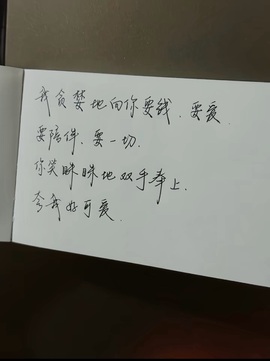 我贪婪地向你要钱.要爱.
要陪伴.要一切.
你笑眯眯地双手奉上.
夸我好可爱.